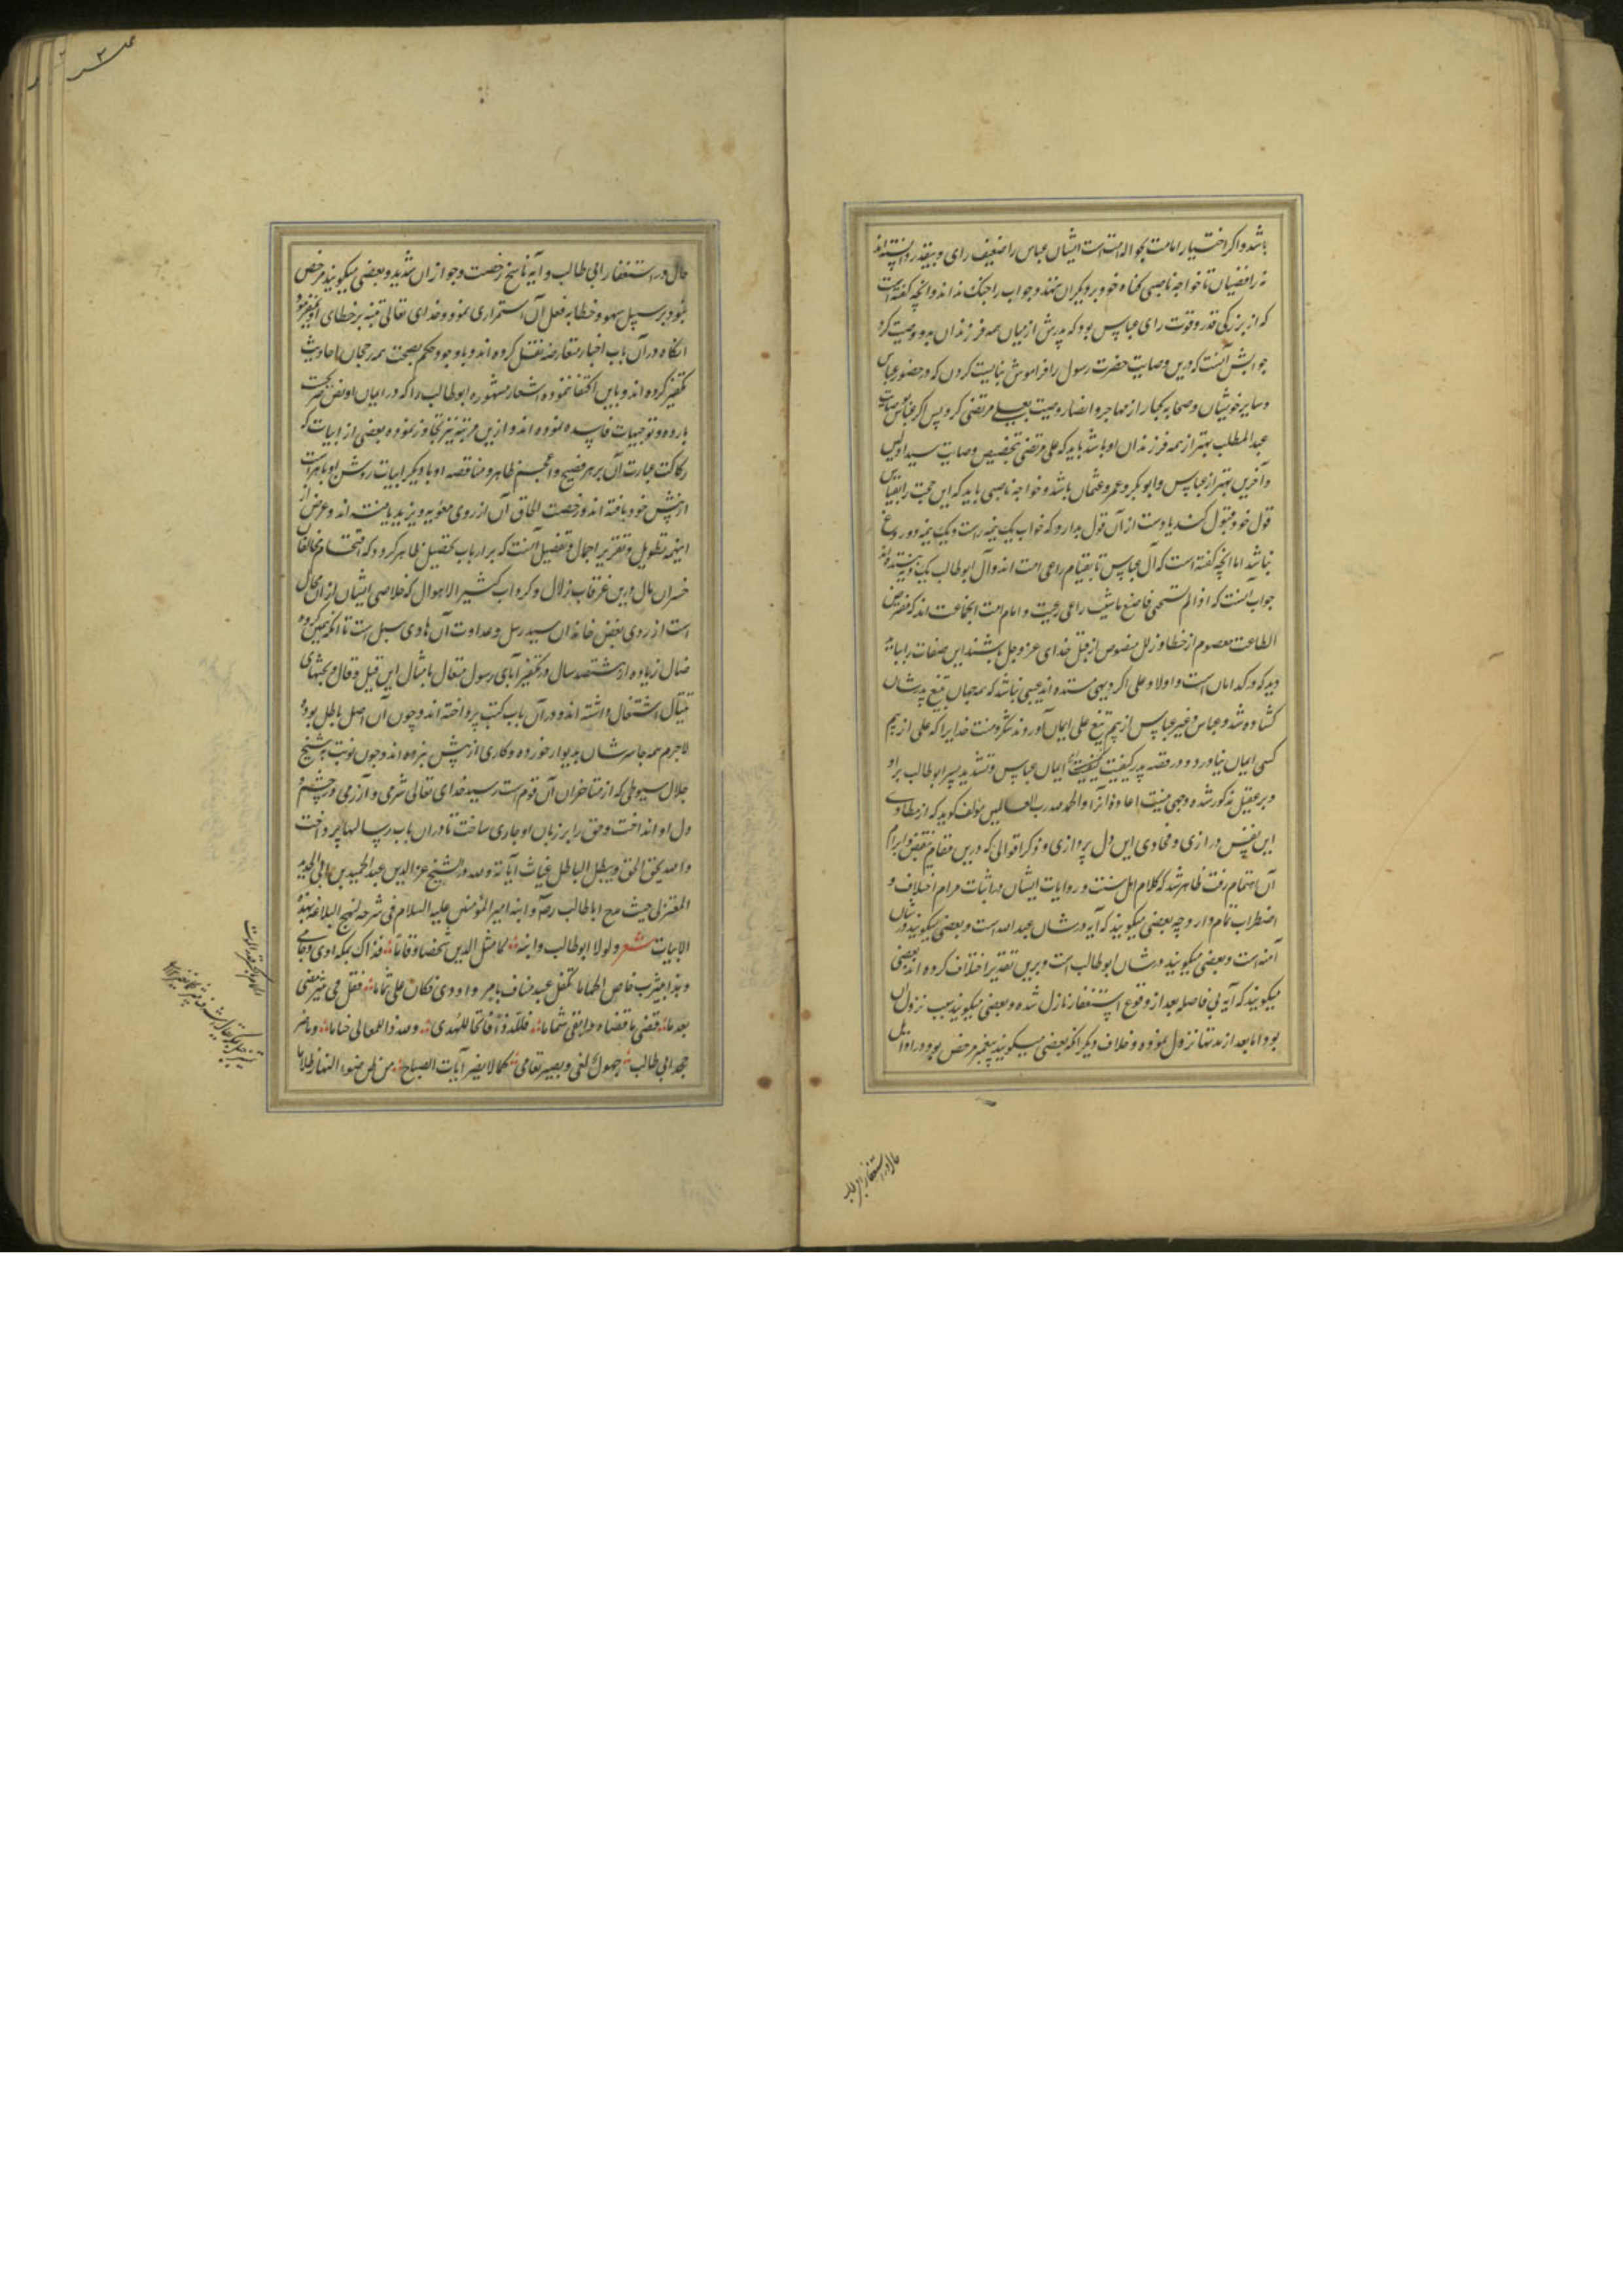 باشد و اگر اختیار امامت بحواله امت است ایشان عباس را ضعیف رای و بیقدر دانسته اند
نه رافضیان تا خواجه ناصبی گناه خود بر دیگران ننهد و جواب را جنگ نداند و آنچه گفته است
که از بزرگی قدر و قوت رای عباس بود که پدرش از میان همه فرزندان بدو وصیت کرد
جوابش آنست که درین وصایت حضرت رسول را فراموش نبایست کردن که در حضور عباس
و سایر خویشان و صحابه کبار از مهاجر و انصار وصیت بعلی مرتضی کرد پس اگر عباس بوصایت
عبد المطلب بهتر از همه فرزندان او باشد باید که علی مرتضی بتخصیص وصایت سید اولین
و آخرین بهتر از عباس و ابو بکر و عمر و عثمان باشد و خواجه ناصبی باید که این حجت را بقیاس
قول خود قبول کند یا دست از آن قول بدارد که خواب یک نیمه راست و یک نیمه دروغ
نباشد اما آنچه گفته است که آل عباس تا بقیام راعی امت اند و آل ابو طالب یک ده نیستند
جواب آنست که اذا لم تستحی فاصنع ما شئت راعی رعیت و امام امت آنجماعت اند که مفترض
الطاعت معصوم از خطا و زلل منصوص از قبل خدای عز و جل باشند این صفات را بباید
دید که در کدامان است و اولاد علی اگر دیهی نستده اند عیبی نباشد که همه جهان بتیغ پدرشان
گشاده شد و عباس و غیر عباس از بیم تیغ علی ایمان آوردند شکر و منت خدایرا که علی از بیم
کسی ایمان نیاورد و در قصه بدر کیفیت ایمان عباس و تشدید پسر ابو طالب بر او
و بر عقیل مذکور شده وجهی نیست اعادۀ آنرا و الحمد لله رب العالمین مؤلف گوید که از مطاوی
این نفس درازی و فحاوی این دل پردازی و ذکر اقوالی که درین مقام بنقض و ابرام
آن اهتمام رفت ظاهر شد که کلام اهل سنت و روایات ایشان در اثبات مرام اختلاف و
اضطراب تمام دارد چه بعضی میگویند که آیه در شان عبد الله است و بعضی میگویند در شان
آمنه است و بعضی میگویند در شان ابو طالب است و برین تقدیر اختلاف کرده اند بعضی
میگویند که آیه بی فاصله بعد از وقوع استغفار نازل شده و بعضی میگویند سبب نزول آن
بود اما بعد از مدتها نزول نموده و خلاف دیگر آنکه بعضی میگویند پیغمبر مرخص بود در اوایل
حال در استغفار ابی طالب
حال در استغفار ابی طالب و آیه ناسخ رخصت و جواز آن شد و بعضی میگویند مرخص
نبود بر سبیل سهو و خطا به فعل آن استمراری نمود و خدای تعالی تنبه بر خطای او
آنگاه در آن باب اخبار متعارضه نقل کرده اند و با وجود حکم بصحت همه رجحان احادیث
تکفیر کرده اند و باین اکتفا ننموده اشعار مشهوره ابو طالب را که در ایمان او نص
بارده و توجیهات فاسده نموده اند و ازین مرتبه نیز تجاوز نموده بعضی از ابیات که
رکاکت عبارت آن بر هر فصیح و اعجم ظاهر و مناقضه او با دیگر ابیات روشن و باهر است
از پیش خود بافته اند و رخصت الحاق آن از روی معویه و یزید یافته اند و غرض از
اینهمه تطویل و تقریر اجمال و تفصیل آنست که بر ارباب تحصیل ظاهر گردد که اقتحام مخالفان
خسران مآل درین غرقاب زلال و گرداب کثیر الاهوال که خلاصی ایشان از آن محال
است از روی بغض خاندان سید رسل و عداوت آن هادی سبل است تا آنکه همین گروه
ضال زیاده از ششصد سال در تکفیر آبای رسول متعال بامثال این قیل و قال و بحثهای
اشتغال داشته اند و در آن باب کتب پرداخته اند و چون آن اصل باطل بوده
لاجرم همه جا سرشان بدیوار خورده و کاری از پیش نبرده اند و چون نوبت بشیخ
جلال سیوطی که از متاخران آن قوم است رسید خدای تعالی شرمی و آزرمی در چشم و
دل او انداخت و حق را بر زبان او جاری ساخت تا در آن باب رسالها پرداخت
و الله یحق الحق و یبطل الباطل آیاته و لله در الشیخ عز الدین عبد الحمید بن ابی الحدید
المعتزلی حیث مدح ابا طالب رضه و ابنه امیر المؤمنین علیه السلام فی شرحه لنهج البلاغه بهذه
الابیات شعر و لولا ابو طالب و ابنه لما مثل الدین شخصا و قاما فذاک بمکه آوی و حامی
و هذا بیثرب خاض الحماما تکفل عبد مناف بامر و اودی فکان علی تماما فقل فی ثبیر مضی
بعد ما قضی ما قضاه و ابقی شماما فلله ذا فاتحا للهدی و لله ذا للمعالی ختاما و ما ضر
مجد ابی طالب جهول لغی و بصیر تعامی کما لا یضر آیات الصباح من ظن ضوء النهار ظلاما